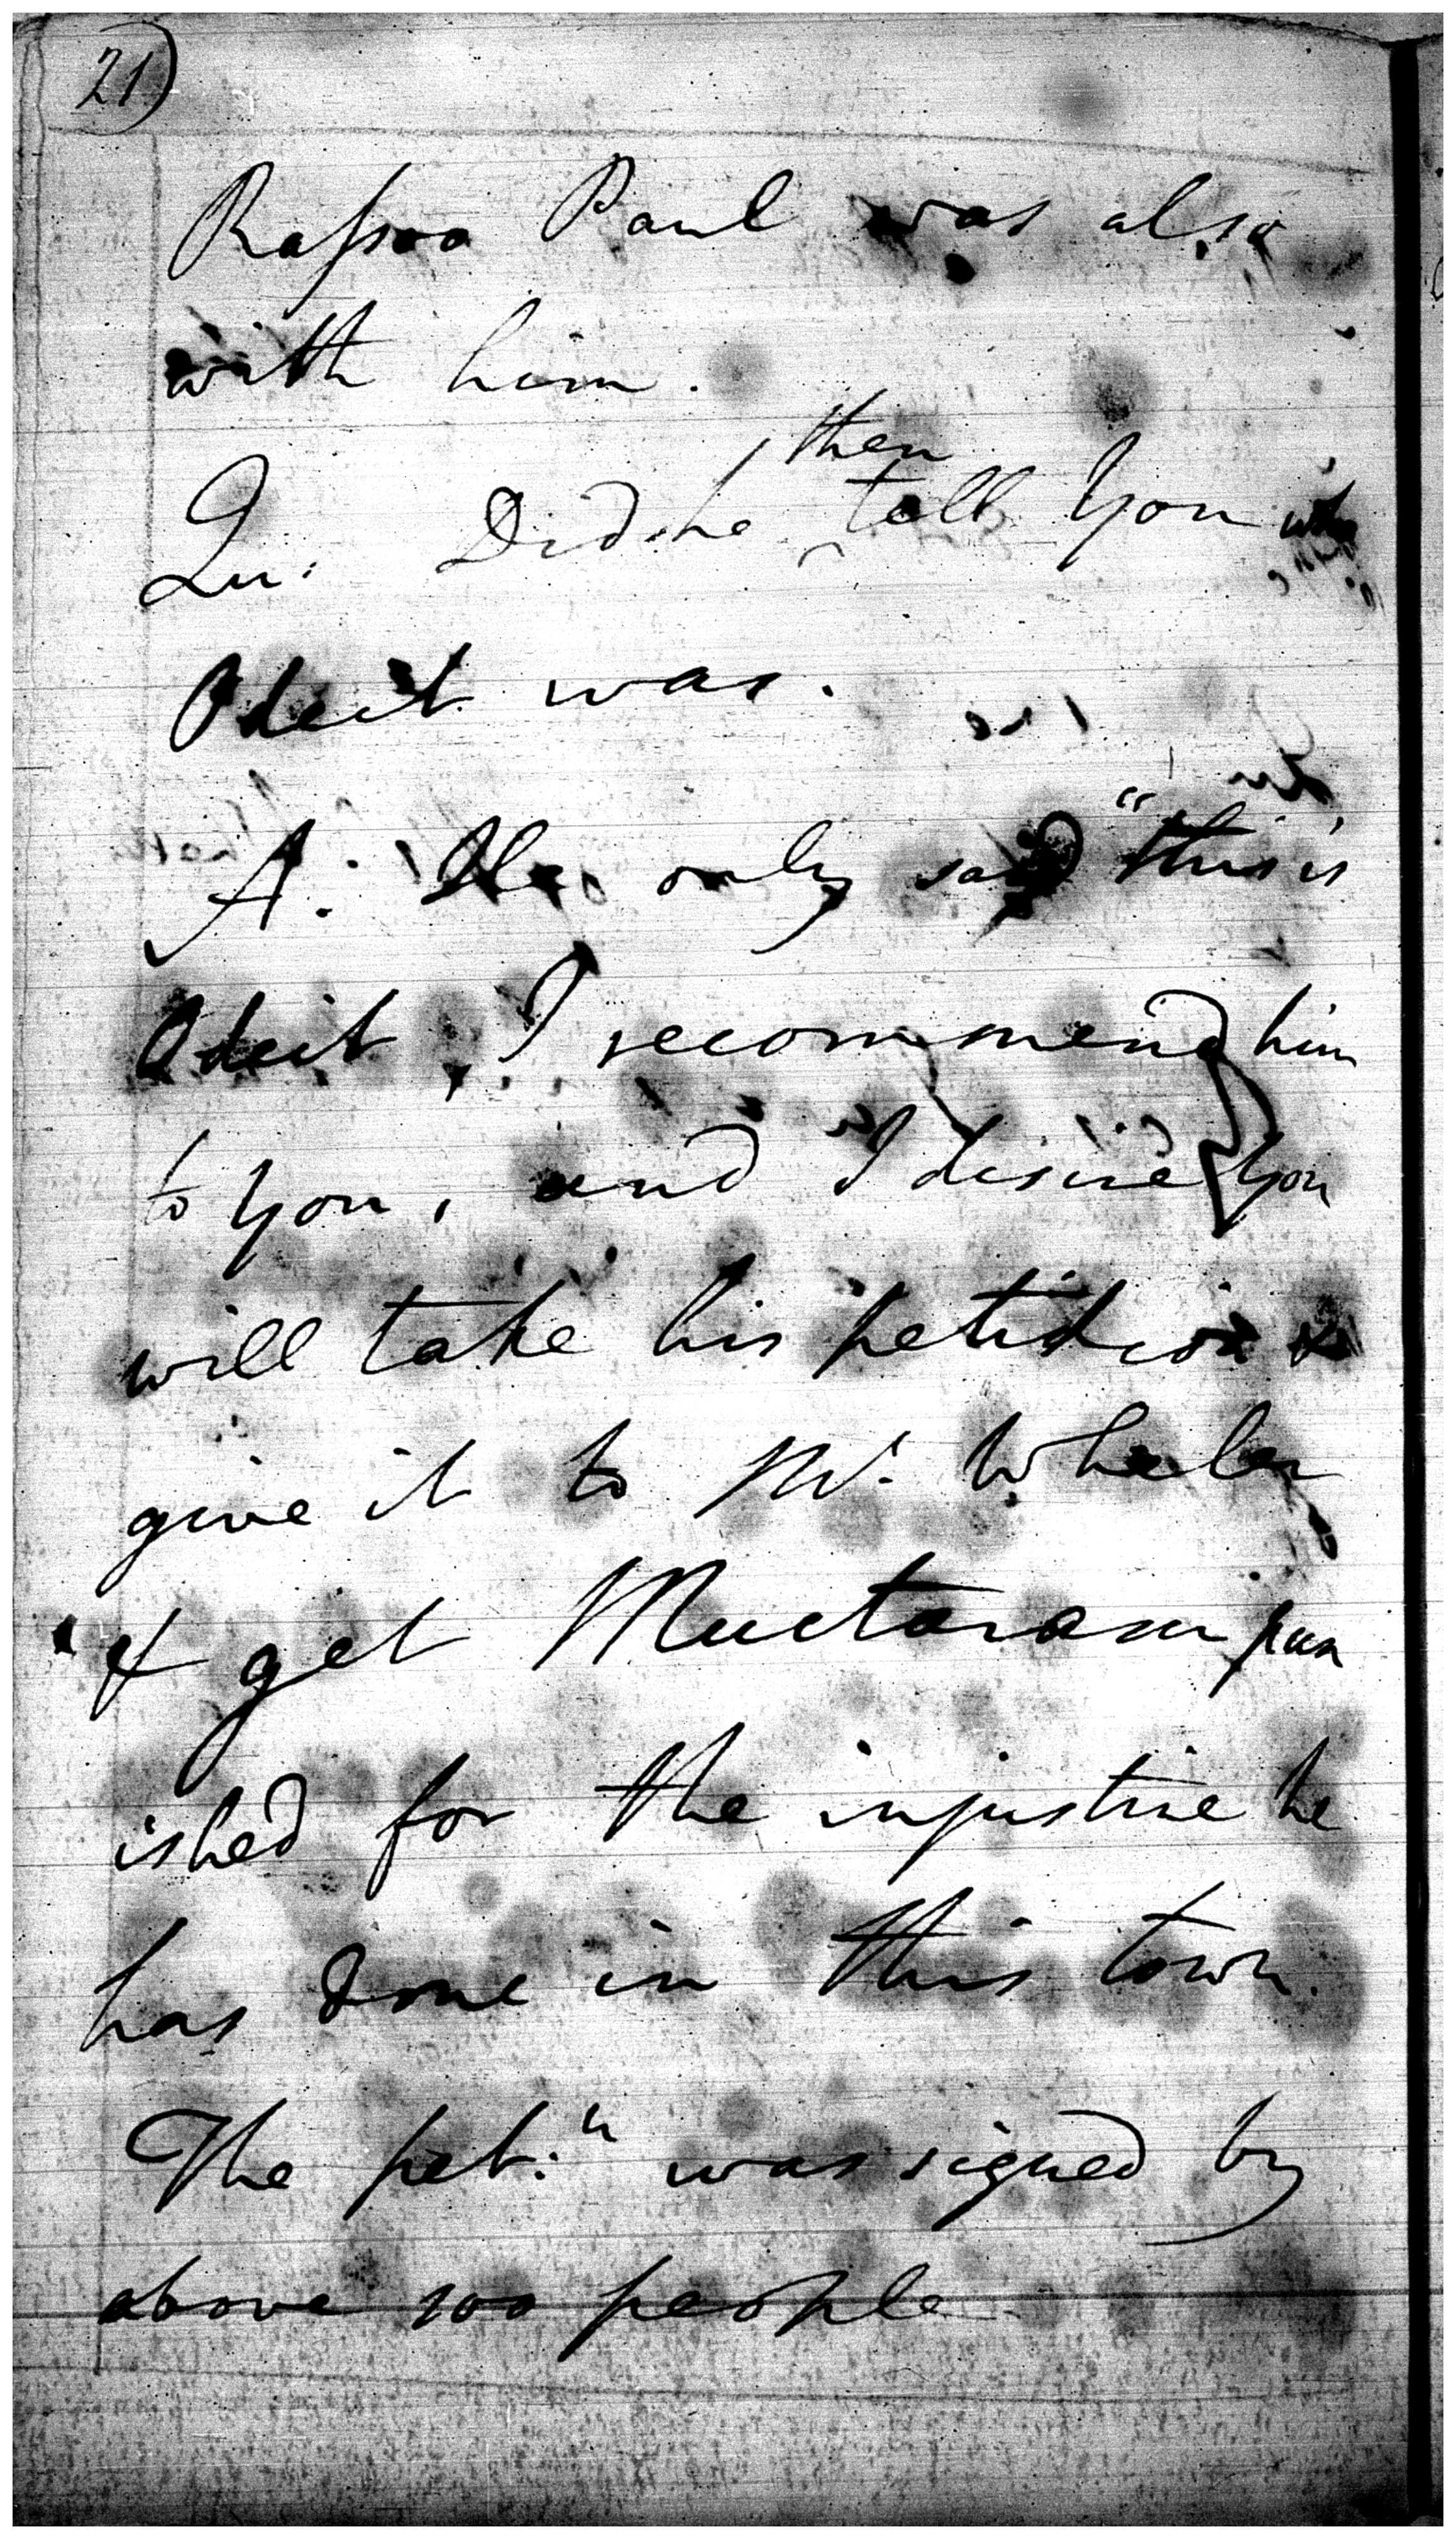 21)
Rassoo Paul was also
with him.
then
Qu: Did he tell You who
Odeit was.
A: He only said "this is
Odeit, I recommend him
to You, and I desire You
will take his petition &
give it to Mr. Wheler
& get Muctaram pun
ished for the injustice he
has done in this town.
The pet:n was signed by
above 100 people